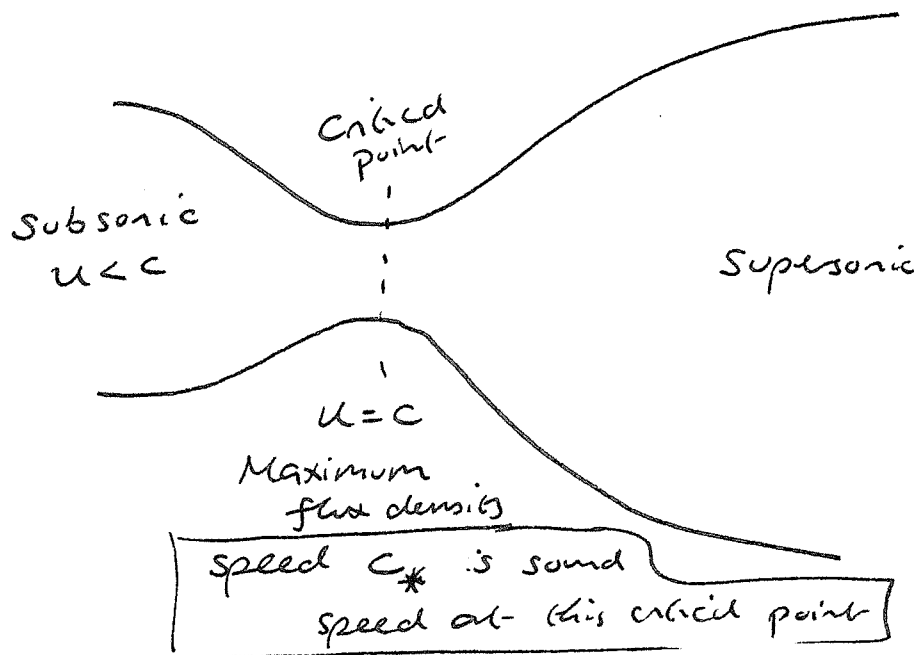 Critical
point
Subsonic
u < c
Supersonic
u = c
Maximum
flux density
speed c_* is sound
speed at this critical point